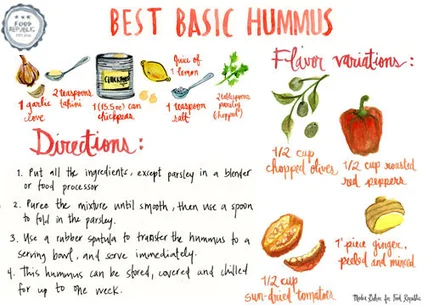 FOOD
REPUBLIC
BEST BASIC HUMMUS
1 garlic
clove
2 teaspoons
tahini
CHICKPEAS
1 (15.5oz) can
chickpeas
Juice of
1 lemon
1 teaspoon
salt
2 tablespoons
parsley
(chopped)
Directions:
1. Put all the ingredients, except parsley in a blender
or food processor
2. Puree the mixture until smooth, then use a spoon
to fold in the parsley.
3. Use a rubber spatula to transfer the hummus to a
serving bowl, and serve immediately.
4. This hummus can be stored, covered and chilled
for up to one week.
Flavor variations:
1/2 cup
chopped olives
1/2 cup roasted
red peppers
1/2 cup
sun-dried tomatoes
1" piece ginger,
peeled and minced
for Food Republic